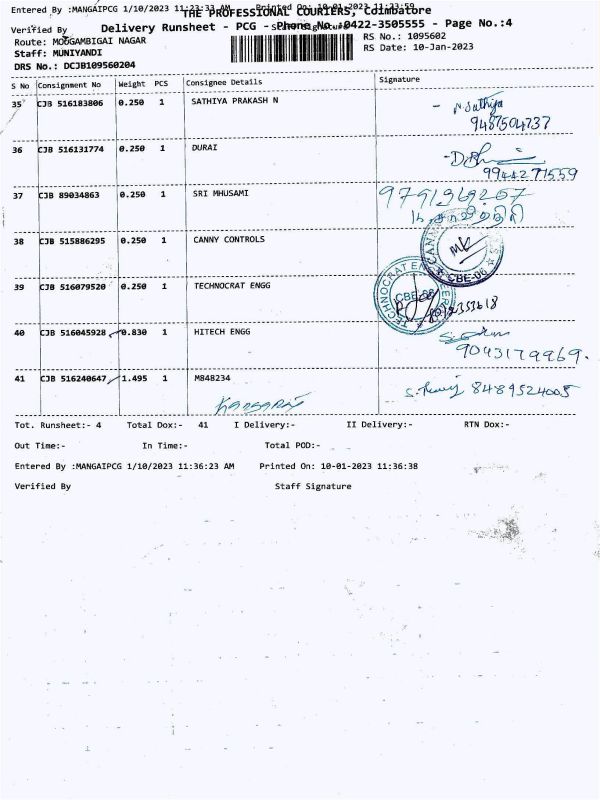 Entered By :MANGAIPCG 1/10/2023 11:23:33 AM Printed On: 10-01-2023 11:23:59
THE PROFESSIONAL COURIERS, Coimbatore
Verified By Staff Signature
Delivery Runsheet - PCG - Phone No.:0422-3505555 - Page No.:4
Route: MOOGAMBIGAI NAGAR
RS No.: 1095602
Staff: MUNIYANDI
RS Date: 10-Jan-2023
DRS No.: DCJB109560204
S No Consignment No Weight PCS Consignee Details Signature
35 CJB 516183806 0.250 1 SATHIYA PRAKASH N N Sathiya
9487504737
36 CJB 516131774 0.250 1 DURAI
9944271559
37 CJB 89034863 0.250 1 SRI MHUSAMI 9791369267
38 CJB 515886295 0.250 1 CANNY CONTROLS
CBE-06
39 CJB 516079520 0.250 1 TECHNOCRAT ENGG
TECHNOCRAT
40 CJB 516045928 0.830 1 HITECH ENGG
9043179969.
41 CJB 516240647 1.495 1 M848234
8489524005
Tot. Runsheet:- 4 Total Dox:- 41 I Delivery:- II Delivery:- RTN Dox:-
Out Time:- In Time:- Total POD:-
Entered By :MANGAIPCG 1/10/2023 11:36:23 AM Printed On: 10-01-2023 11:36:38
Verified By Staff Signature